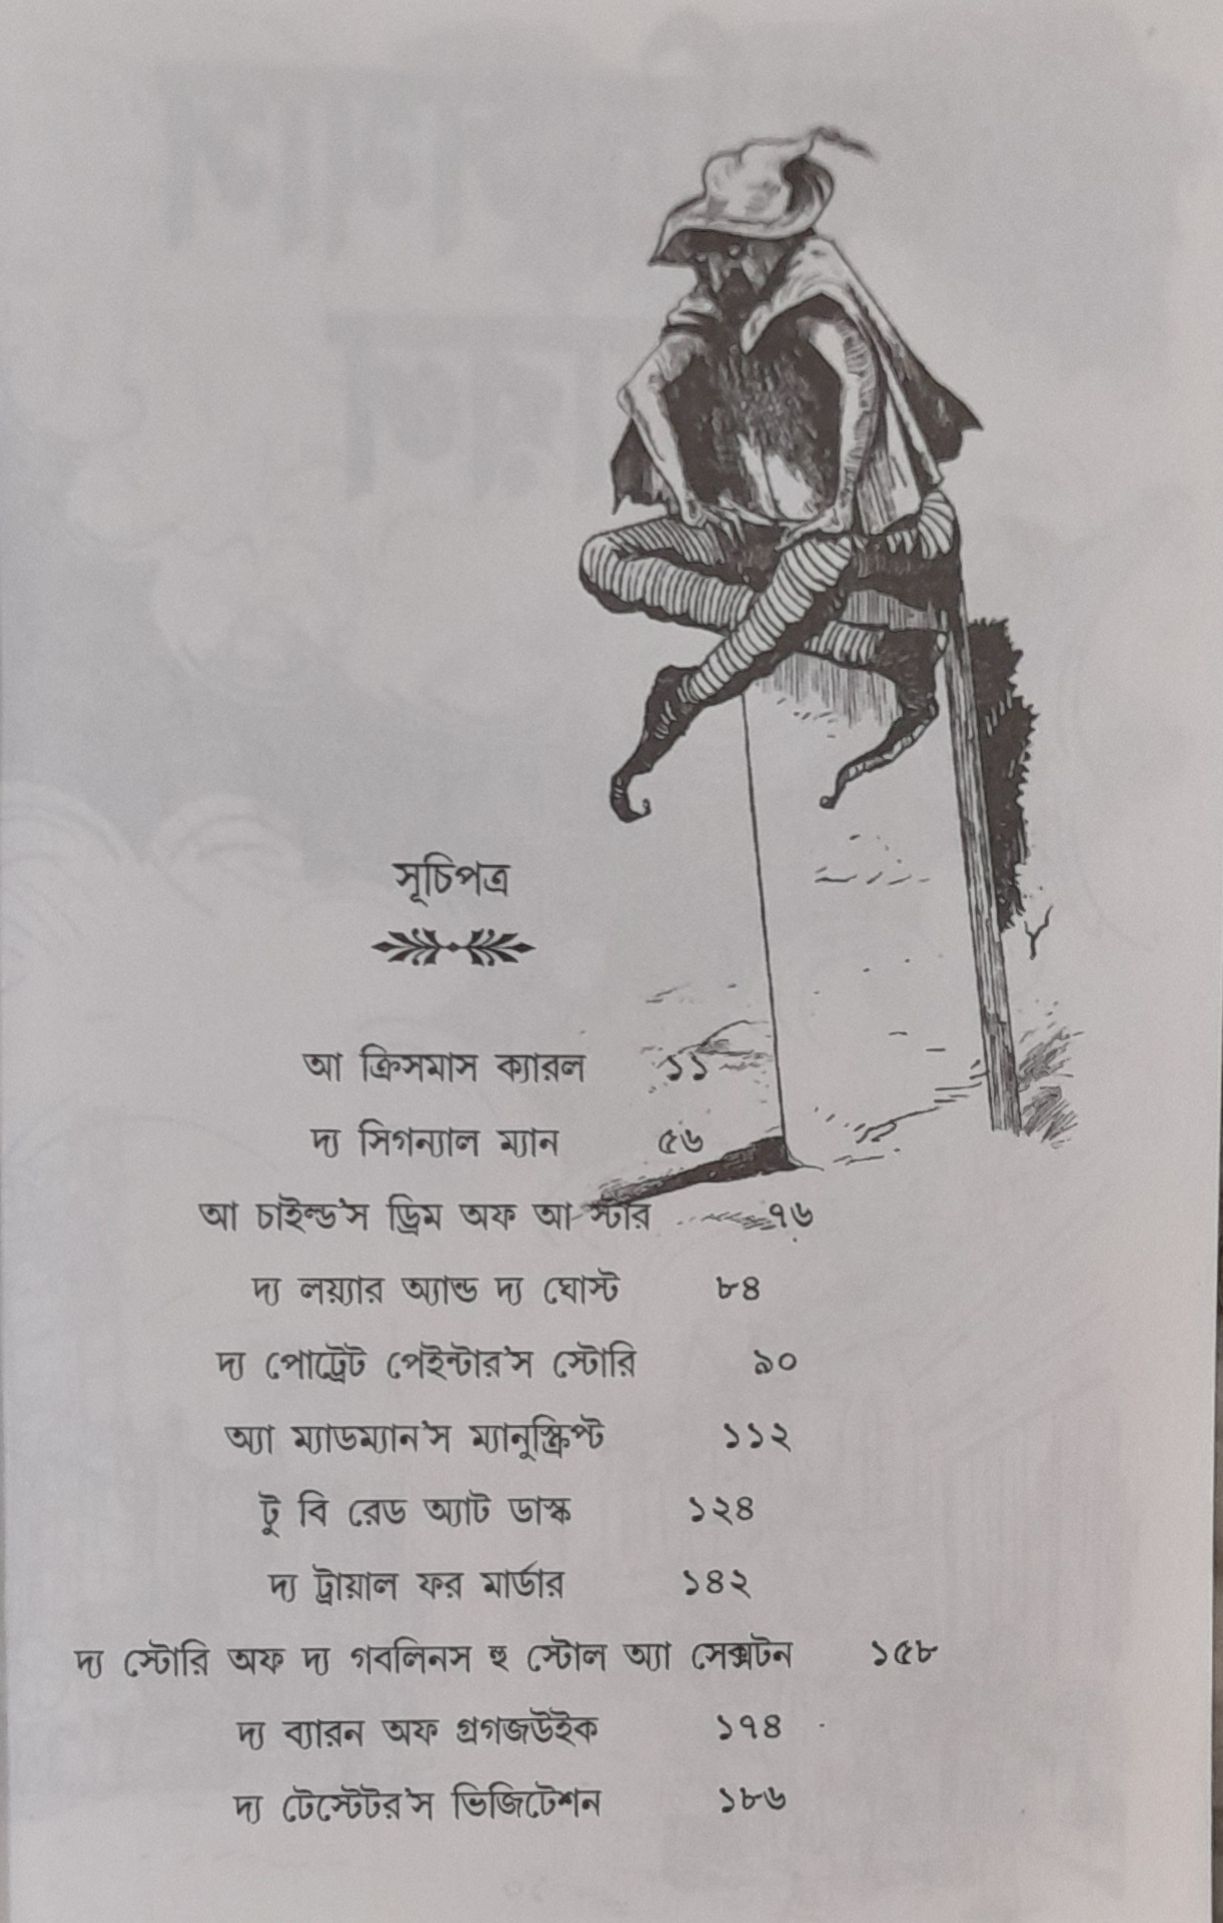 সূচিপত্র
আ ক্রিসমাস ক্যারল ১১
দ্য সিগন্যাল ম্যান ৫৬
আ চাইল্ড'স ড্রিম অফ আ স্টার ৭৬
দ্য লয়্যার অ্যান্ড দ্য ঘোস্ট ৮৪
দ্য পোট্রেট পেইন্টার'স স্টোরি ৯০
অ্যা ম্যাডম্যান'স ম্যানুস্ক্রিপ্ট ১১২
টু বি রেড অ্যাট ডাস্ক ১২৪
দ্য ট্রায়াল ফর মার্ডার ১৪২
দ্য স্টোরি অফ দ্য গবলিনস হু স্টোল অ্যা সেক্সটন ১৫৮
দ্য ব্যারন অফ গ্রগজউইক ১৭৪
দ্য টেস্টেটর'স ভিজিটেশন ১৮৬